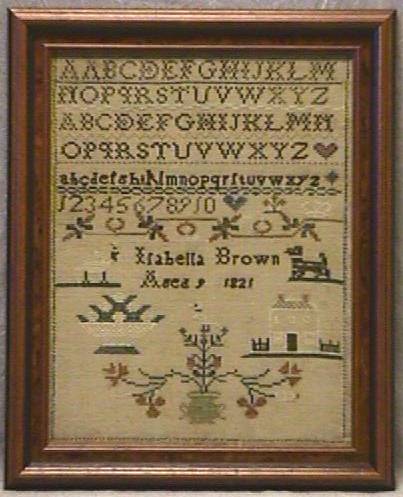 AABCDEFGHIJKLM
NOPQRSTUVWXYZ
ABCDEFGHIJKLMN
OPQRSTUVWXYZ
abcdefghiNlmnopqrstuvwxyz
12345678910
Isabella Brown
Aged 9 1821